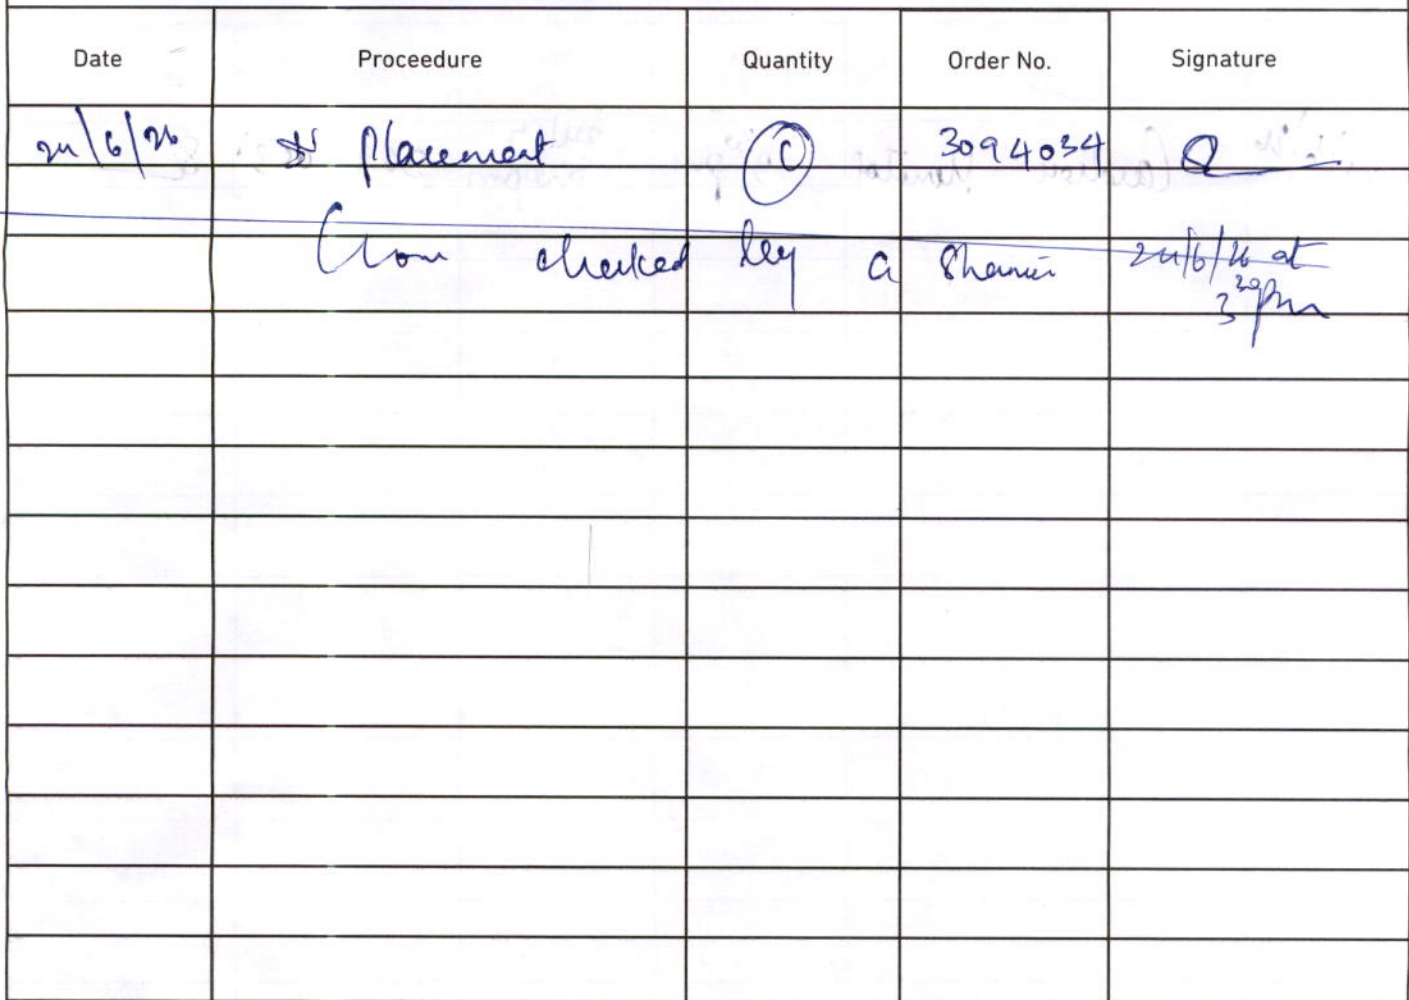 Date Proceedure Quantity Order No. Signature
24/6/26 IV Placement 1 3094034
checked by a 24/6/26 at
3 30pm